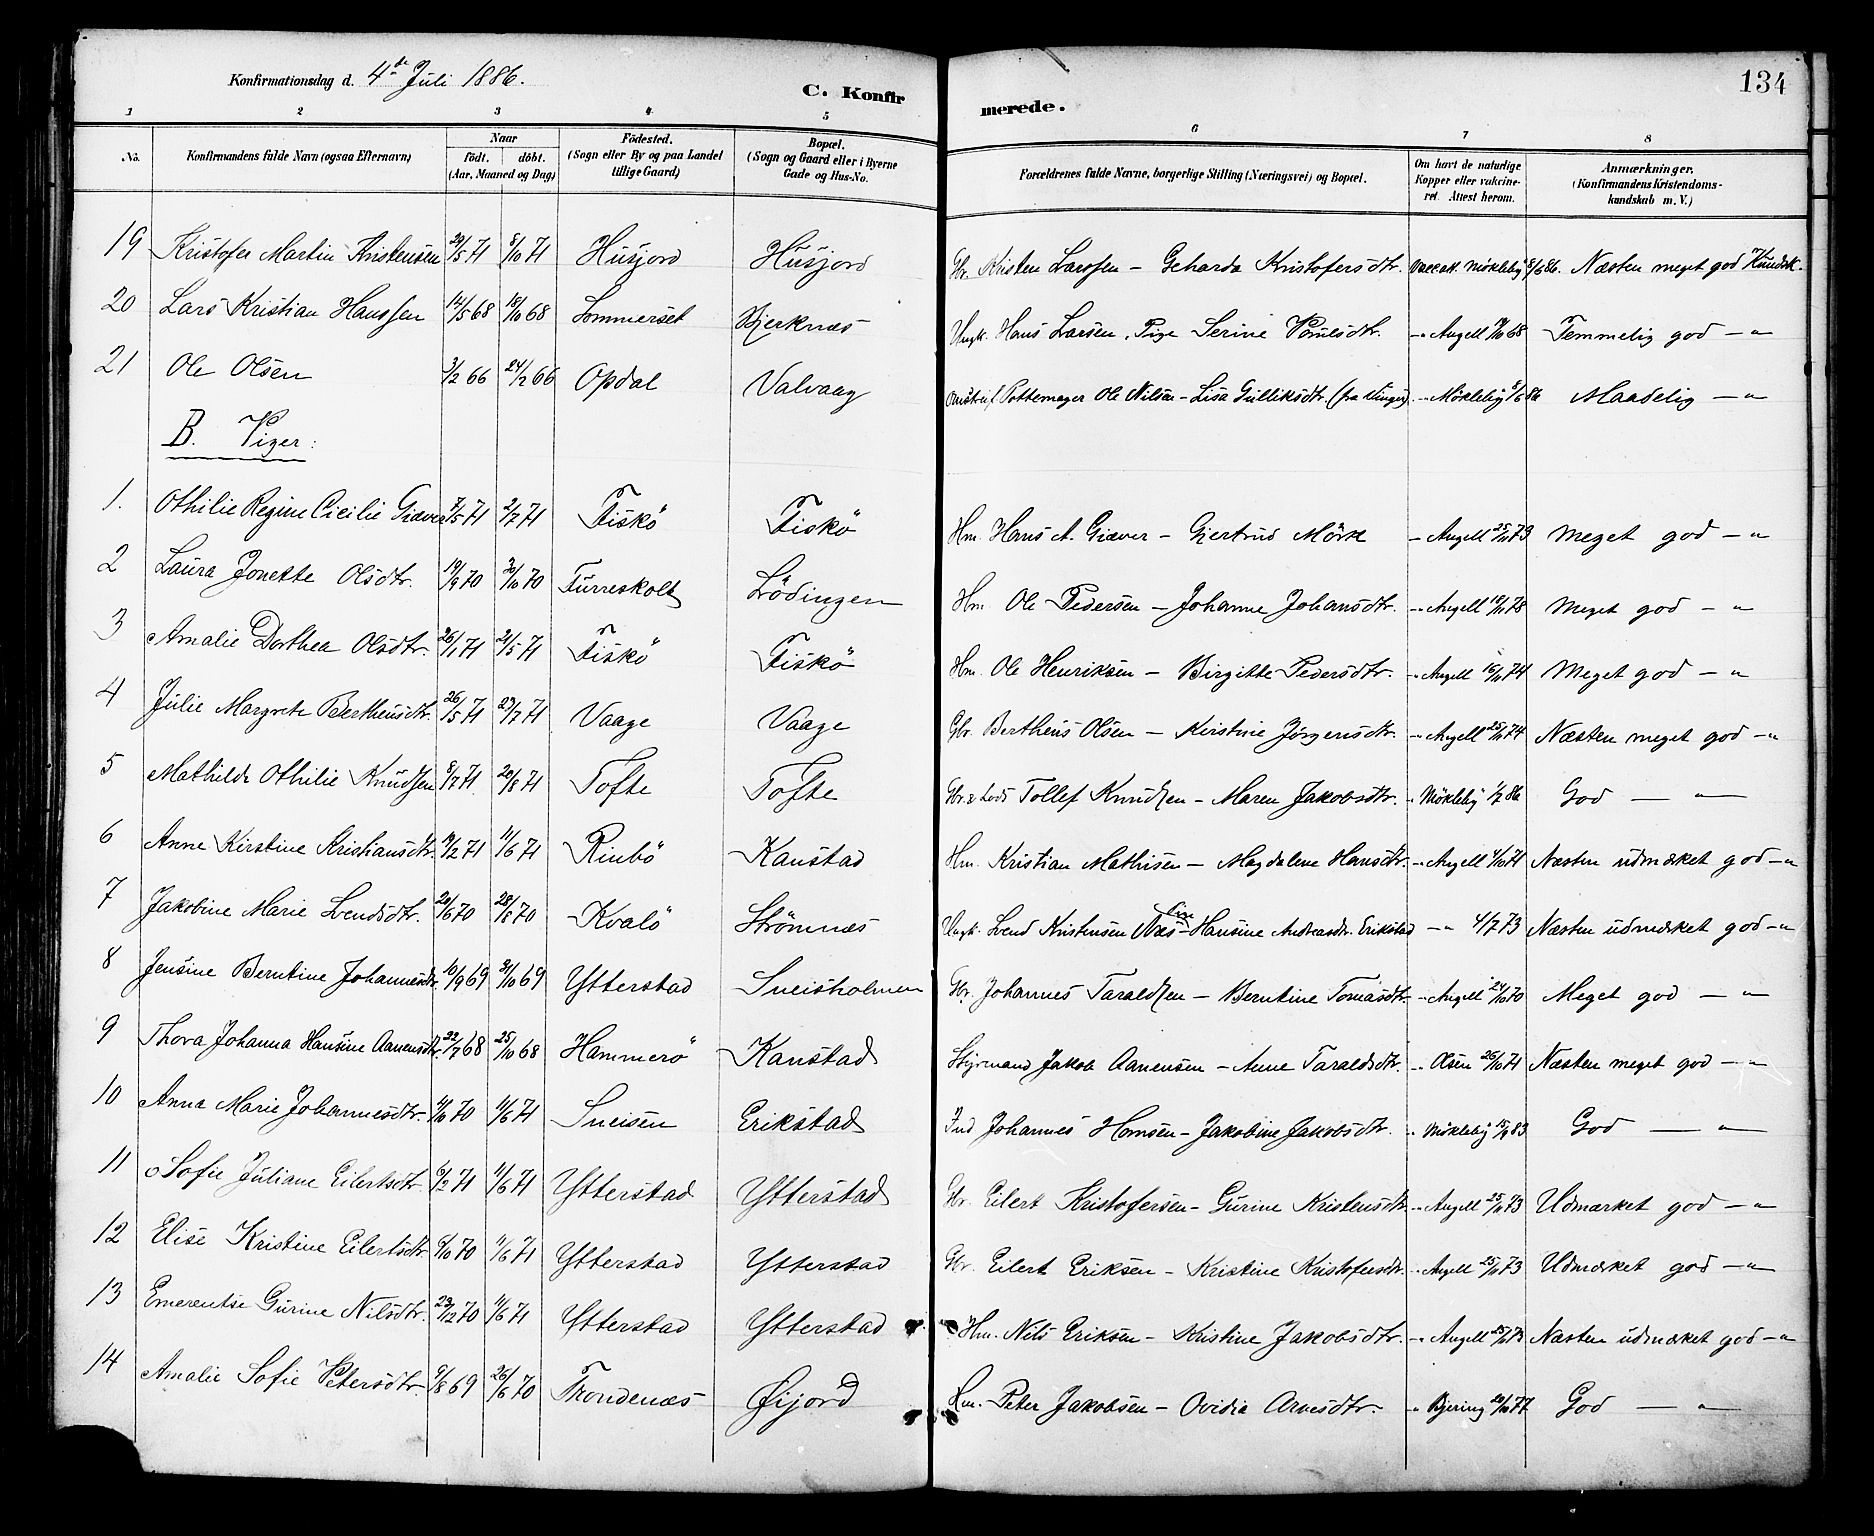 134
Konfirmationsdag d. 4de Juli 1886.
C. Konfirmerede.
1 2 3 4 5 6 7 8
No. Konfirmandens fulde Navn (ogsaa Efternavn) Naar födt. döbt. (Aar, Maaned og Dag) Födested. (Sogn eller By og paa Landet tillige Gaard) Bopæl. (Sogn og Gaard eller i Byerne Gade og Hus-No. Forældrenes fulde Navne, borgerlige Stilling (Næringsvei) og Bopæl. Om havt de naturlige Kopper eller vakcineret. Attest herom. Anmærkninger. (Konfirmandens Kristendomskundskab m. V.)
19 Kristofer Martin Kristensen 29/5 71 8/10 71 Husjord Husjord Gbr. Kristen Larssen - Geharda Kristofersdtr. Vaccatt. Mökleby 8/6 86. Næsten meget god Kundsk.
20 Lars Kristian Hanssen 14/5 68 18/10 68 Sommerset Bjerknæs Ungk. Hans Larsen, Pige Serine Poulsdtr. -"- Angell 19/10 68 Temmelig god -"-
21 Ole Olsen 3/2 66 24/2 66 Opdal Valvaag Pottemager Ole Nilsen - Lisa Gulliksdtr. -"- Mökleby 8/6 86 Maadelig -"-
B. Piger:
1. Othilie Regine Cicilie Giæver 7/5 71 2/7 71 Fiskö Fiskö Hm. Hans A. Giæver - Gjertrud Mörk - Angell 25/11 73 Meget god -"-
2 Laura Jonette Olsdtr. 19/9 70 30/10 70 Furreskolt Lödingen Hm. Ole Pedersen - Johanne Johansdtr. -"- Angell 18/11 78 Meget god -"-
3 Amalie Dorthea Olsdtr. 26/1 71 21/5 71 Fiskö Fiskö Hm. Ole Henriksen - Birgitte Pedersdtr. -"- Angell 16/11 74 Meget god -"-
4 Julie Margrete Bertheusdtr. 26/5 71 23/7 71 Vaage Vaage Gbr. Bertheus Olsen - Kirstine Jørgensdtr. -"- Angell 25/11 74 Næsten meget god -"-
5 Mathilde Othilie Knudsen 8/7 71 20/8 71 Tofte Tofte Gbr. & Lods Tollef Knudsen - Maren Jakobsdtr. " Mökleby 1/7 86 God -"-
6 Anne Kirstine Kristiansdtr. 19/2 71 11/6 71 Rinbö Kanstad Hm. Kristian Mathisen - Magdalene Hansdtr. -"- Angell 4/10 71 Næsten udmærket god -"-
7 Jakobine Marie Svendsdtr. 20/6 70 28/8 70 Kvalö Strömnæs Ungk. Svend Kristensen Næs - Hansine Andreasdtr. Erikstad -"- 4/7 73 Næsten udmærket god -"-
8 Jensine Berntine Johannesdtr. 10/9 69 31/10 69 Ytterstad Sneisholmen Gbr. Johannes Taraldsen - Berntine Tomasdtr. -"- Angell 24/10 70 Meget god -"-
9 Thora Johanna Hansine Aanensdtr. 22/7 68 25/10 68 Hammerö Kanstad Styrmand Jakob Aanensen - Anne Taraldsdtr. -"- Olsen 26/10 71 Næsten meget god -"-
10 Anna Marie Johannesdtr. 4/10 70 11/6 71 Sneisen Erikstad Ind Johannes Hansen - Jakobine Jakobsdtr. -"- Mökleby 19/9 83 God -"-
11 Sofie Juliane Eilertsdtr. 6/2 71 11/6 71 Ytterstad Ytterstad Gbr. Eilert Kristofersen - Gurine Kristensdtr. -"- Angell 25/11 73 Udmærket god -"-
12 Elise Kristine Eilertsdtr. 6/10 70 11/6 71 Ytterstad Ytterstad Gbr. Eilert Eriksen - Kristine Kristofersdtr. -"- Angell 25/11 73 Udmærket god -"-
13 Emerentse Gurine Nilsdtr. 23/12 70 11/6 71 Ytterstad Ytterstad Hm. Nils Eriksen - Kristine Jakobsdtr. -"- Angell 25/11 73 Næsten udmærket god -"-
14 Amalie Sofie Petersdtr. 9/8 69 26/6 70 Trondenæs Øijord Hm. Peter Jakobsen - Ovidia Arnesdtr. " Bjering 20/10 77 God -"-